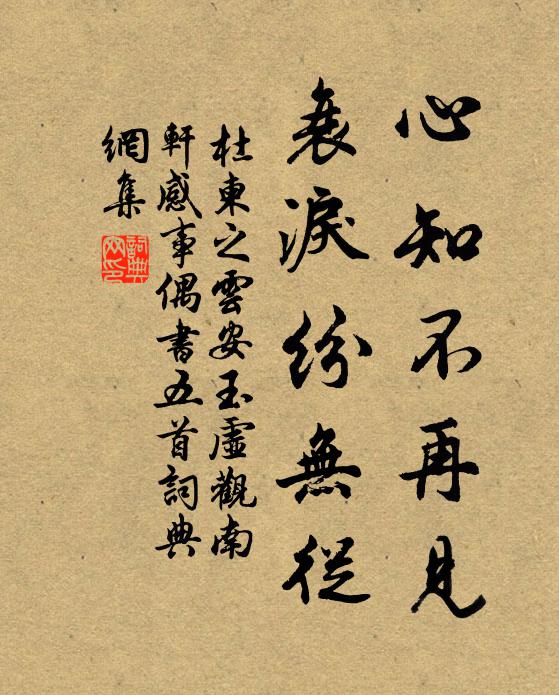 心知不再見
衰淚紛無從
杜東之雲安玉虛觀南
軒感事偶書五首詞典
網集
詞典網印